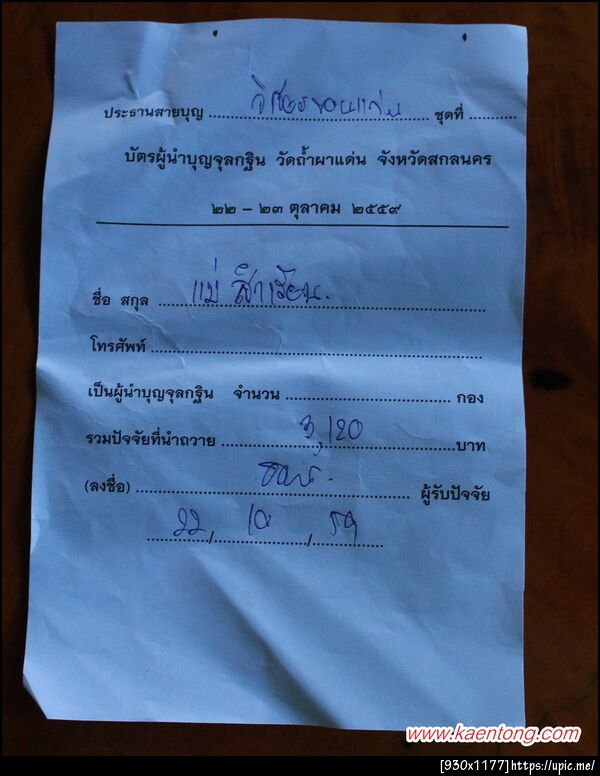 ประธานสายบุญ ........ขอนแก่น........ ชุดที่ ..........
บัตรผู้นำบุญจุลกฐิน วัดถ้ำผาแด่น จังหวัดสกลนคร
๒๒ - ๒๓ ตุลาคม ๒๕๕๙
ชื่อ สกุล ........แม่........
โทรศัพท์ ........
เป็นผู้นำบุญจุลกฐิน จำนวน ........ กอง
รวมปัจจัยที่นำถวาย ........3,120........ บาท
(ลงชื่อ) ........ ผู้รับปัจจัย
22, 10, 59
www.kaentong.com
[930x1177]https://upic.me/